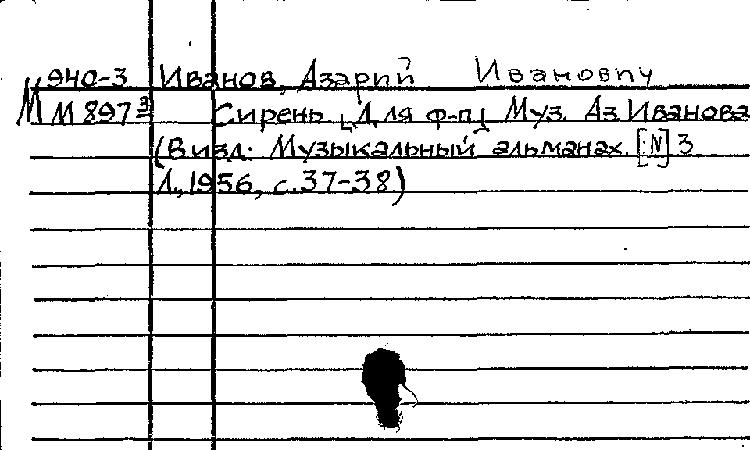 940-3 Иванов, Азарий Иванович
М М 897 Сирень. [Для ф-п] Муз. Аз Иванова
(В изд: Музыкальный альманах. [N] 3
Л., 1956, с. 37-38)